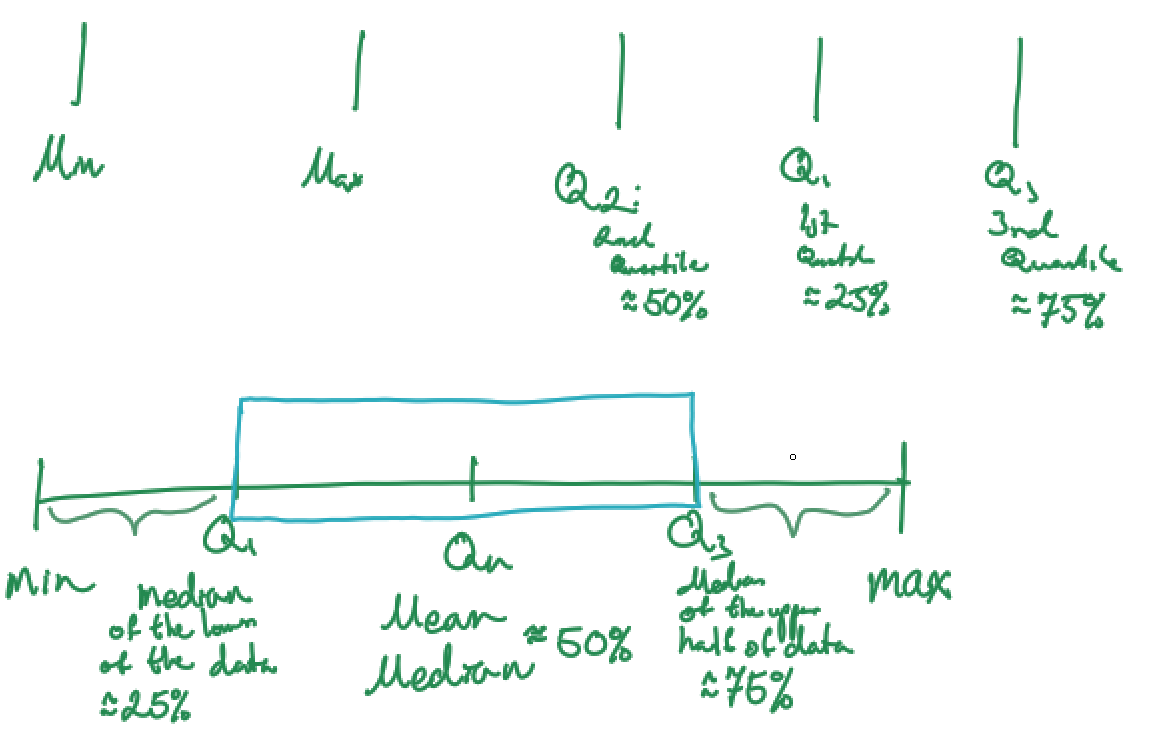 Min
Max
Q2:
2nd
Quartile
≈50%
Q1
1st
≈25%
Q3
3nd
Quartile
≈75%
Min
Q1
median
of the
of the data
≈25%
Qn
Mean
Median ≈50%
Q3
Median
of the upper
half of data
≈75%
max